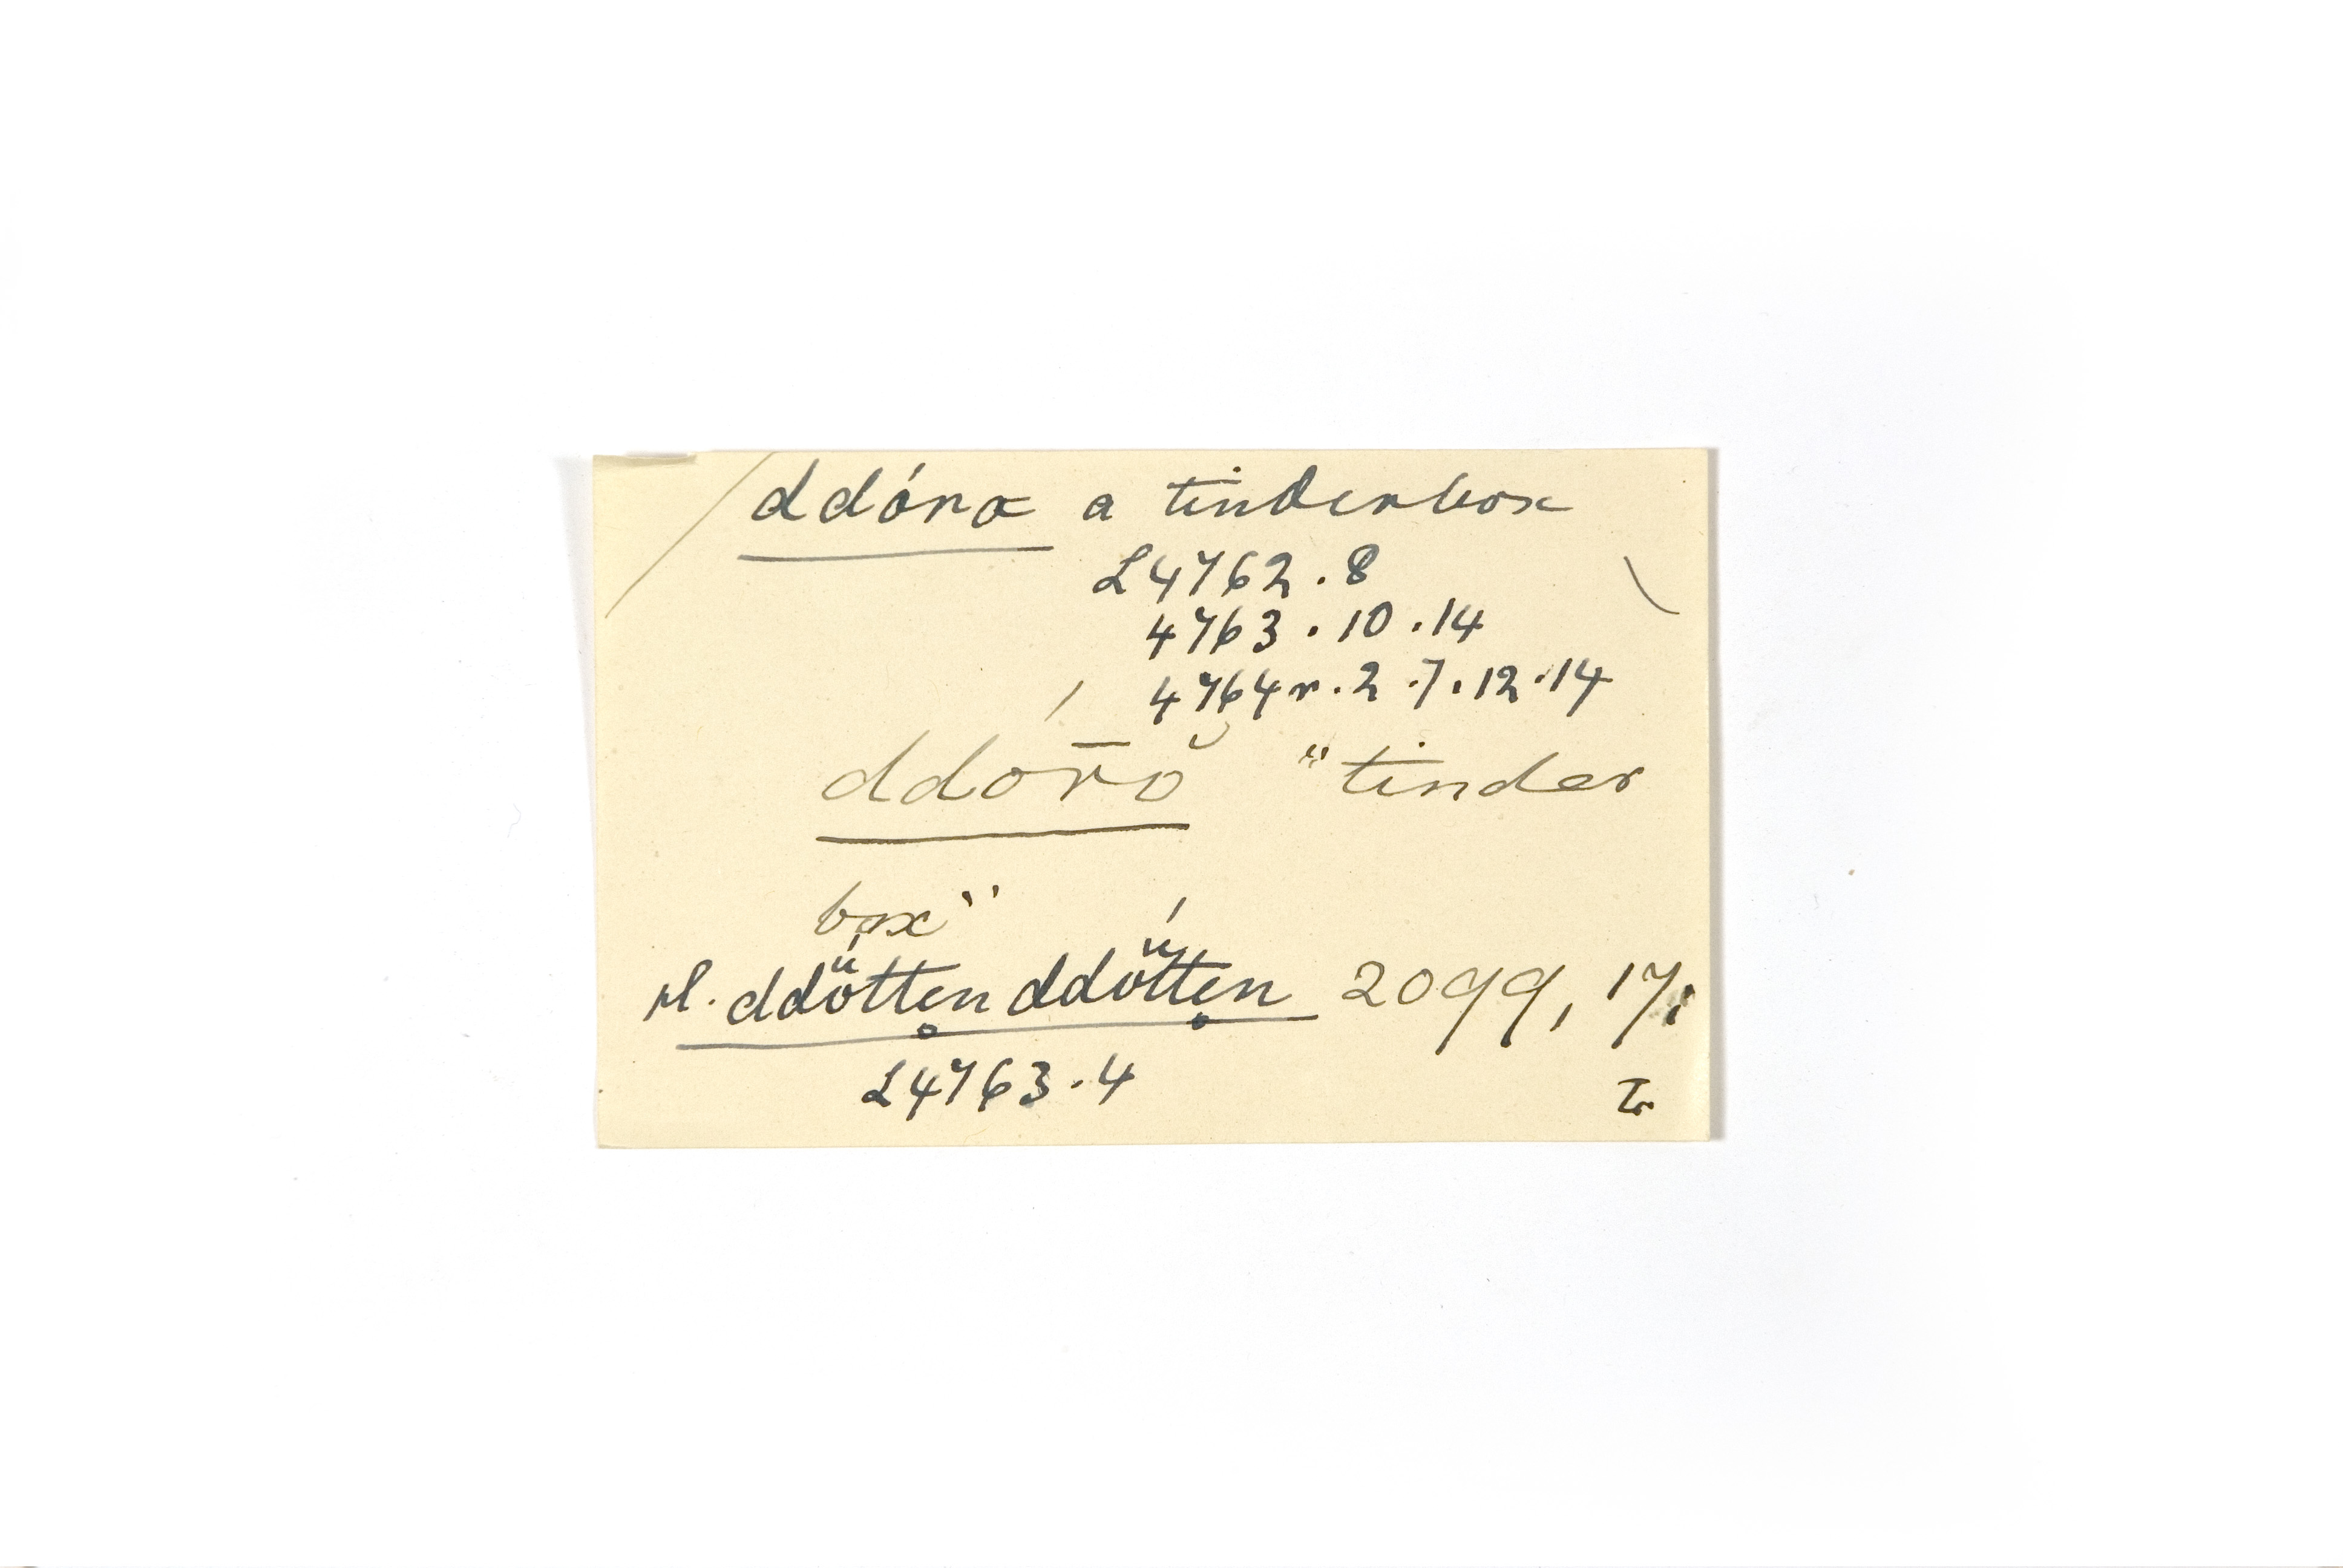 ddóra a tinderbox
L4762.8
4763.10.14
4764r.2.7.12.14
ddōrŏ "tinder
box"
pl. ddötten ddötten 2099, 17;
L4763.4